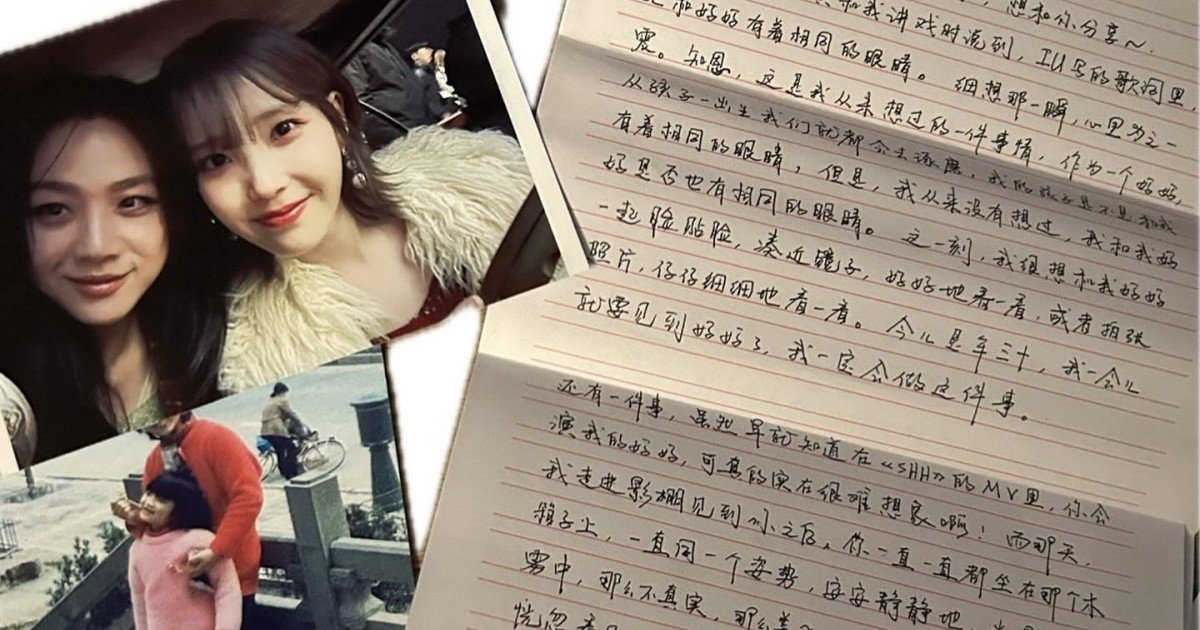 想和你分享~.
和我讲戏时说到, IU写的歌词里
和妈妈有着相同的眼睛。细想那一瞬, 心里为之一
震。知恩, 这是我从未想过的一件事情, 作为一个妈妈,
从孩子一出生我们就都会去琢磨, 我的孩子是不是和我
有着相同的眼睛, 但是, 我从来没有想过, 我和我妈
妈是否也有相同的眼睛。这一刻, 我很想和我妈妈
一起脸贴脸, 凑近镜子, 好好地看一看, 或者拍张
照片, 仔仔细细地看一看。今儿是年三十, 我一会儿
就要见到妈妈了, 我一定会做这件事。
还有一件事, 虽然早就知道在《SHH》的MV里, 你会
演我的妈妈, 可真的实在很难想象啊! 而那天,
我走进影棚见到你之后, 你一直一直都坐在那个木
箱子上, 一直同一个姿势, 安安静静地,
雾中, 那么不真实, 那么美~
恍忽